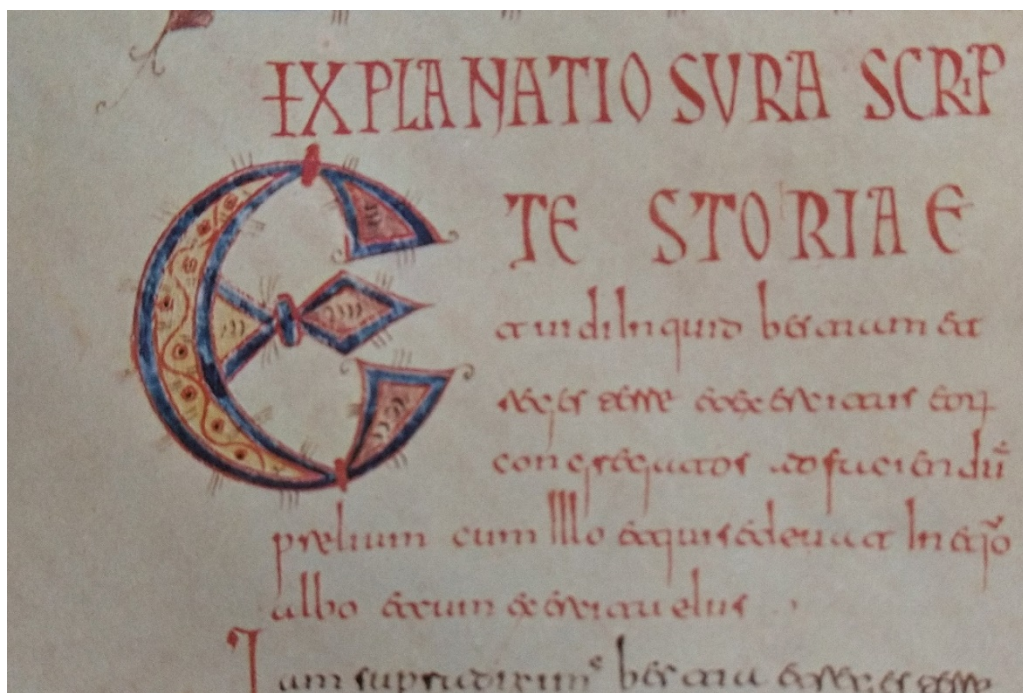 EXPLANATIO SVRA SCRIP
TE STORIAE
Et uidi Inquid bestiam et
reges terre et exercitus eorꝝ
congregatos ad faciendū
prelium cum Illo qui sedeuat In equo
albo et cum exercitu eius
Iam supra diximˢ bestia